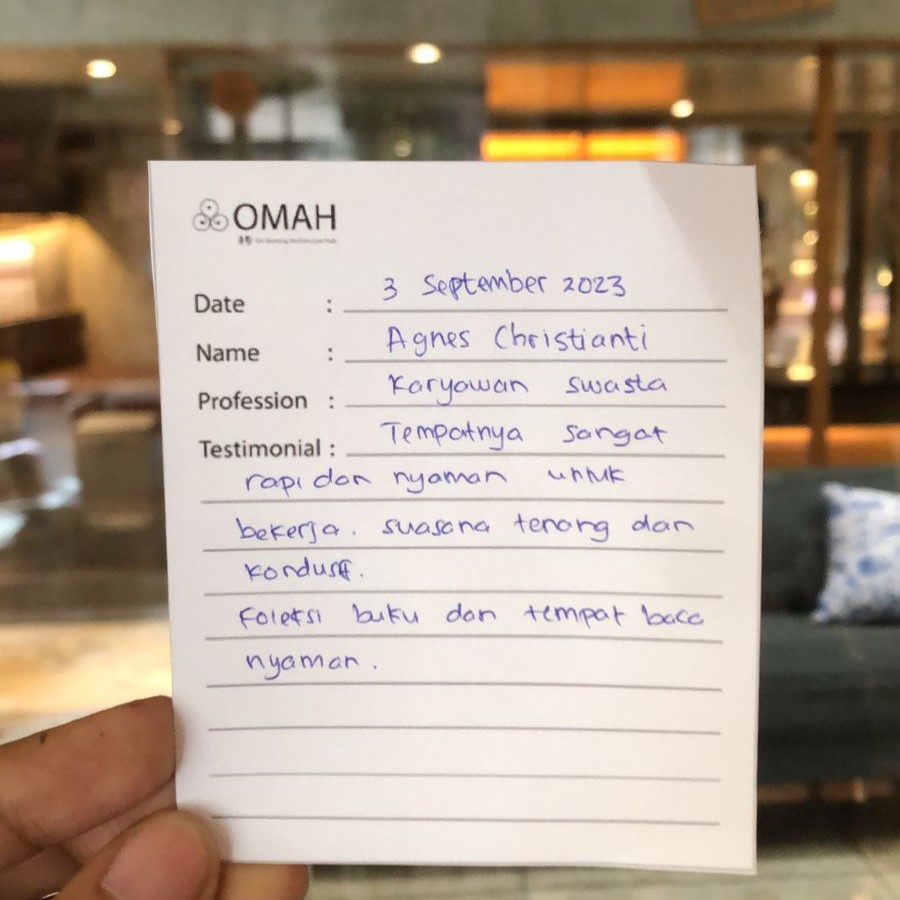 OMAH
Date : 3 September 2023
Name : Agnes Christianti
Profession : Karyawan swasta
Testimonial : Tempatnya sangat
rapi dan nyaman untuk
bekerja. suasana tenang dan
kondusif.
Koleksi buku dan tempat baca
nyaman.